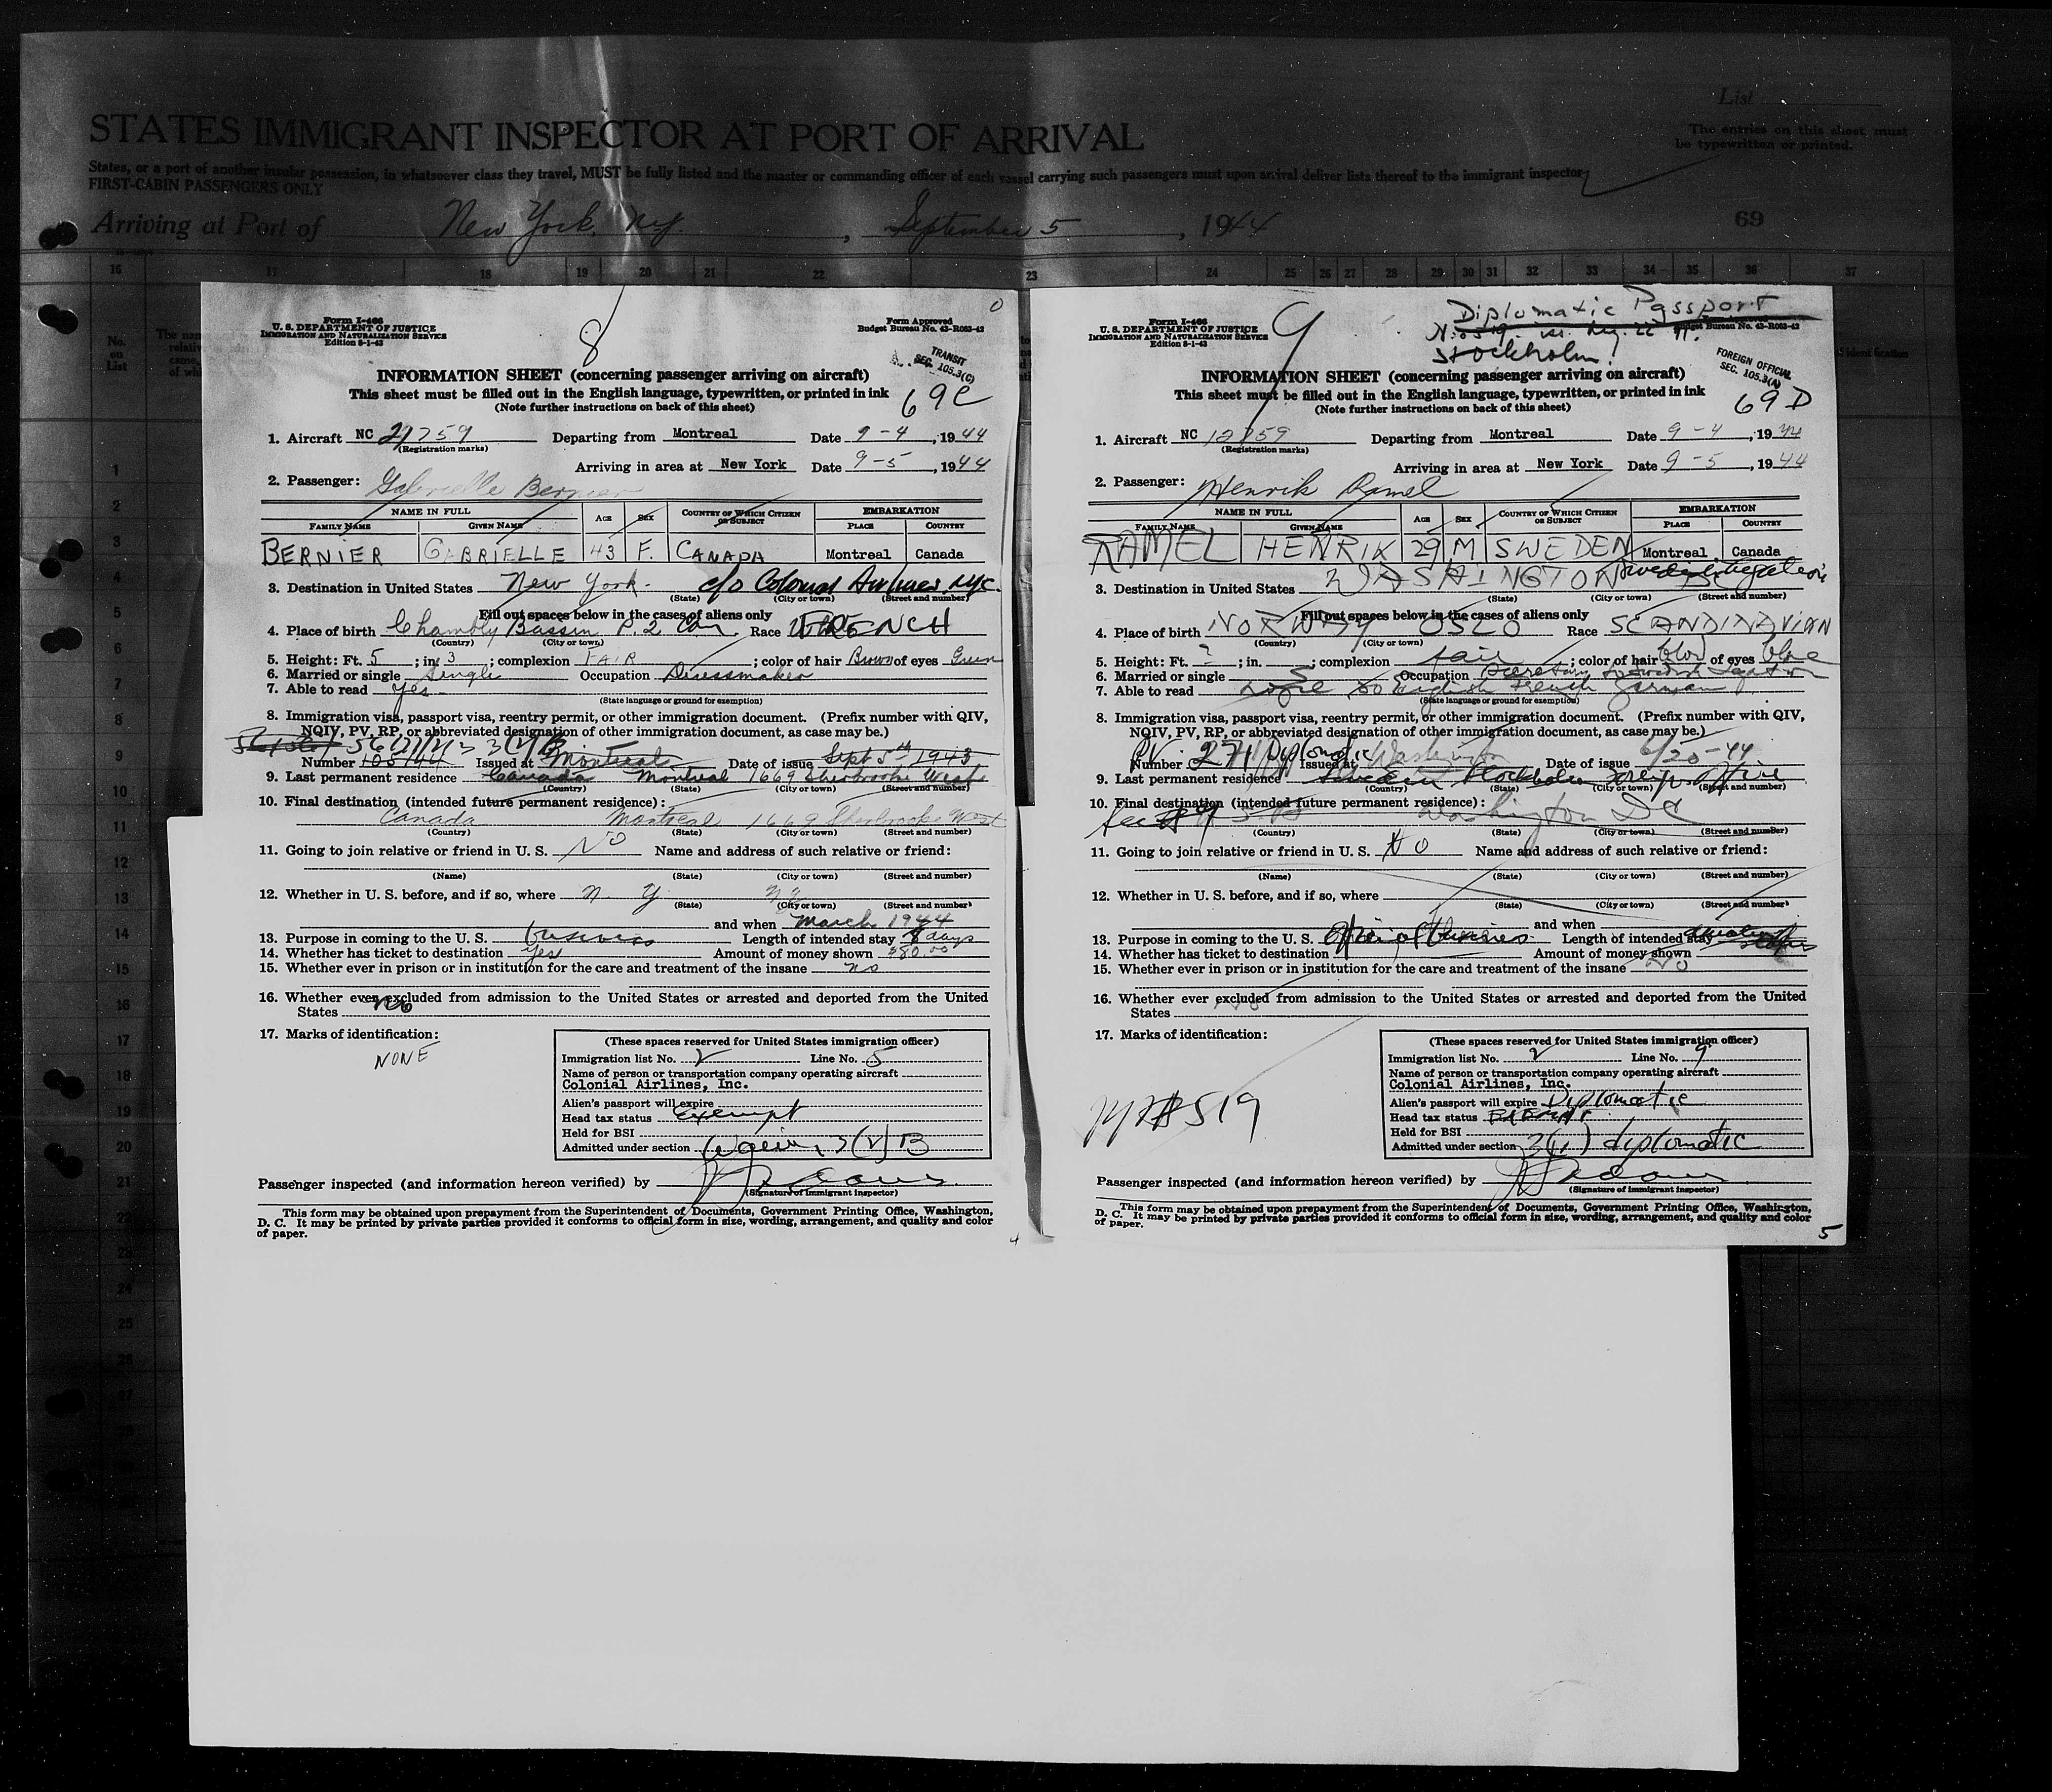 List
STATES IMMIGRANT INSPECTOR AT PORT OF ARRIVAL
The entries on this sheet must
be typewritten or printed.
States, or a port of another insular possession, in whatsoever class they travel, MUST be fully listed and the master or commanding officer of each vessel carrying such passengers must upon arrival deliver lists thereof to the immigrant inspector
FIRST-CABIN PASSENGERS ONLY
Arriving at Port of New York, N.Y. , September 5 , 1944 69
16 17 18 19 20 21 22 23 24 25 26 27 28 29 30 31 32 33 34 35 36 37
No.
on
List
1
2
3
4
5
6
7
8
9
10
11
12
13
14
15
16
17
18
19
20
21
22
23
24
25
26
27
28
Form I-466
U. S. DEPARTMENT OF JUSTICE
IMMIGRATION AND NATURALIZATION SERVICE
Edition 8-1-43
8
Form Approved
Budget Bureau No. 43-R063-42
TRANSIT
SEC. 105.3(C)
INFORMATION SHEET (concerning passenger arriving on aircraft)
This sheet must be filled out in the English language, typewritten, or printed in ink
(Note further instructions on back of this sheet)
69C
1. Aircraft NC 21759 Departing from Montreal Date 9-4, 1944
(Registration marks)
Arriving in area at New York Date 9-5, 1944
2. Passenger: Gabrielle Bernier
NAME IN FULL AGE SEX COUNTRY OF WHICH CITIZEN OR SUBJECT EMBARKATION
FAMILY NAME GIVEN NAME PLACE COUNTRY
BERNIER GABRIELLE 43 F. CANADA Montreal Canada
3. Destination in United States New York c/o Colonial Airlines, NYC.
(State) (City or town) (Street and number)
Fill out spaces below in the cases of aliens only
4. Place of birth Chambly Bassin P.2 Can. Race FRENCH
(Country) (City or town)
5. Height: Ft. 5; in. 3; complexion FAIR; color of hair Brown of eyes Green
6. Married or single Single Occupation Dressmaker
7. Able to read yes
(State language or ground for exemption)
8. Immigration visa, passport visa, reentry permit, or other immigration document. (Prefix number with QIV,
NQIV, PV, RP, or abbreviated designation of other immigration document, as case may be.)
Number 105/44 Issued at Montreal Date of issue Sept 5th 1943
9. Last permanent residence Canada Montreal 1669 Sherbrooke West
(Country) (State) (City or town) (Street and number)
10. Final destination (intended future permanent residence):
Canada Montreal 1669 Sherbrooke West
(Country) (State) (City or town) (Street and number)
11. Going to join relative or friend in U. S. NO Name and address of such relative or friend:
(Name) (State) (City or town) (Street and number)
12. Whether in U. S. before, and if so, where N. Y. N.Y.
(State) (City or town) (Street and number)
and when March 1944
13. Purpose in coming to the U. S. business Length of intended stay 8 days
14. Whether has ticket to destination yes Amount of money shown $80.00
15. Whether ever in prison or in institution for the care and treatment of the insane no
16. Whether ever excluded from admission to the United States or arrested and deported from the United
States no
17. Marks of identification:
NONE
(These spaces reserved for United States immigration officer)
Immigration list No. 2 Line No. 5
Name of person or transportation company operating aircraft
Colonial Airlines, Inc.
Alien's passport will expire
Head tax status Exempt
Held for BSI
Admitted under section 3(2)B
Passenger inspected (and information hereon verified) by
(Signature of immigrant inspector)
This form may be obtained upon prepayment from the Superintendent of Documents, Government Printing Office, Washington,
D. C. It may be printed by private parties provided it conforms to official form in size, wording, arrangement, and quality and color
of paper.
4
Form I-466
U. S. DEPARTMENT OF JUSTICE
IMMIGRATION AND NATURALIZATION SERVICE
Edition 8-1-43
9
Diplomatic Passport
Stockholm
Budget Bureau No. 43-R063-42
FOREIGN OFFICIAL
SEC. 105.3(A)
INFORMATION SHEET (concerning passenger arriving on aircraft)
This sheet must be filled out in the English language, typewritten, or printed in ink
(Note further instructions on back of this sheet)
69D
1. Aircraft NC 12759 Departing from Montreal Date 9-4, 1944
(Registration marks)
Arriving in area at New York Date 9-5, 1944
2. Passenger: Henrik Ramel
NAME IN FULL AGE SEX COUNTRY OF WHICH CITIZEN OR SUBJECT EMBARKATION
FAMILY NAME GIVEN NAME PLACE COUNTRY
RAMEL HENRIK 29 M SWEDEN Montreal Canada
3. Destination in United States WASHINGTON Swedish Legation
(State) (City or town) (Street and number)
Fill out spaces below in the cases of aliens only
4. Place of birth NORWAY OSLO Race SCANDINAVIAN
(Country) (City or town)
5. Height: Ft. ?; in. ; complexion fair; color of hair blond of eyes blue
6. Married or single S Occupation Secretary to Swedish Legation
7. Able to read English French German
(State language or ground for exemption)
8. Immigration visa, passport visa, reentry permit, or other immigration document. (Prefix number with QIV,
NQIV, PV, RP, or abbreviated designation of other immigration document, as case may be.)
Number PV. 271 Diplomatic Issued at Washington Date of issue 6/20-44
9. Last permanent residence Sweden Stockholm Foreign Office
(Country) (State) (City or town) (Street and number)
10. Final destination (intended future permanent residence):
Washington DC
(Country) (State) (City or town) (Street and number)
11. Going to join relative or friend in U. S. NO Name and address of such relative or friend:
(Name) (State) (City or town) (Street and number)
12. Whether in U. S. before, and if so, where
(State) (City or town) (Street and number)
and when
13. Purpose in coming to the U. S. Official business Length of intended stay duration of status
14. Whether has ticket to destination Amount of money shown
15. Whether ever in prison or in institution for the care and treatment of the insane NO
16. Whether ever excluded from admission to the United States or arrested and deported from the United
States NO
17. Marks of identification:
(These spaces reserved for United States immigration officer)
Immigration list No. 2 Line No. 9
Name of person or transportation company operating aircraft
Colonial Airlines, Inc.
Alien's passport will expire Diplomatic
Head tax status EXEMPT
Held for BSI
Admitted under section 3(1) diplomatic
Passenger inspected (and information hereon verified) by
(Signature of immigrant inspector)
This form may be obtained upon prepayment from the Superintendent of Documents, Government Printing Office, Washington,
D. C. It may be printed by private parties provided it conforms to official form in size, wording, arrangement, and quality and color
of paper.
5